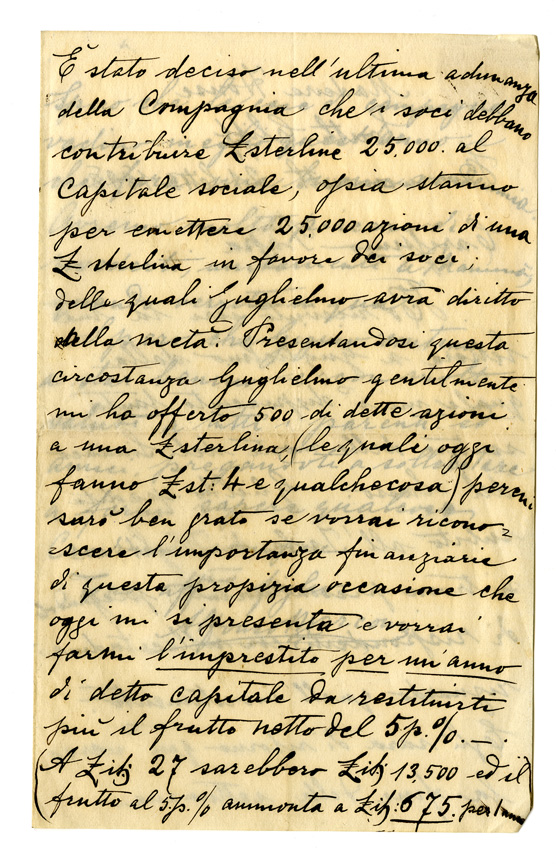 È stato deciso nell'ultima adunanza
della Compagnia che i soci debbano
contribuire £sterline 25.000. al
Capitale sociale, ossia stanno
per emettere 25.000 azioni di una
£ sterlina in favore dei soci,
delle quali Guglielmo avrà diritto
alla metà. Presentandosi questa
circostanza Guglielmo gentilmente
mi ha offerto 500 di dette azioni
a una £sterlina, (le quali oggi
fanno £st: 4 e qualchecosa) percui
sarò ben grato se vorrai ricono=
=scere l'importanza finanziaria
di questa propizia occasione che
oggi mi si presenta e vorrai
farmi l'imprestito per un'anno
di detto capitale da restituirti
più il frutto netto del 5p.%. —
(A £it 27 sarebbero £it 13,500 ed il
frutto al 5.p.% ammonta a £it: 675. per 1 anno